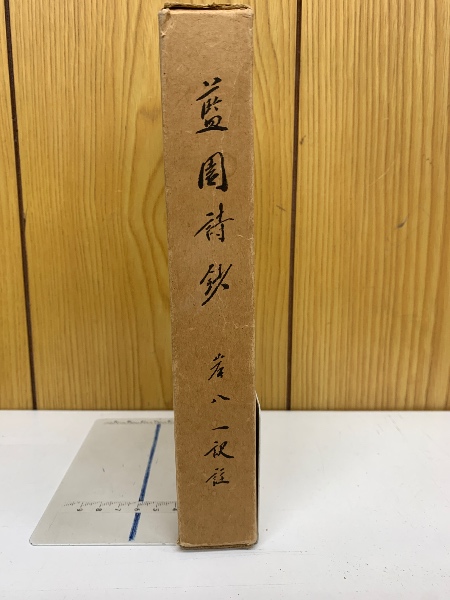 藍園詩鈔
岩八一訳註